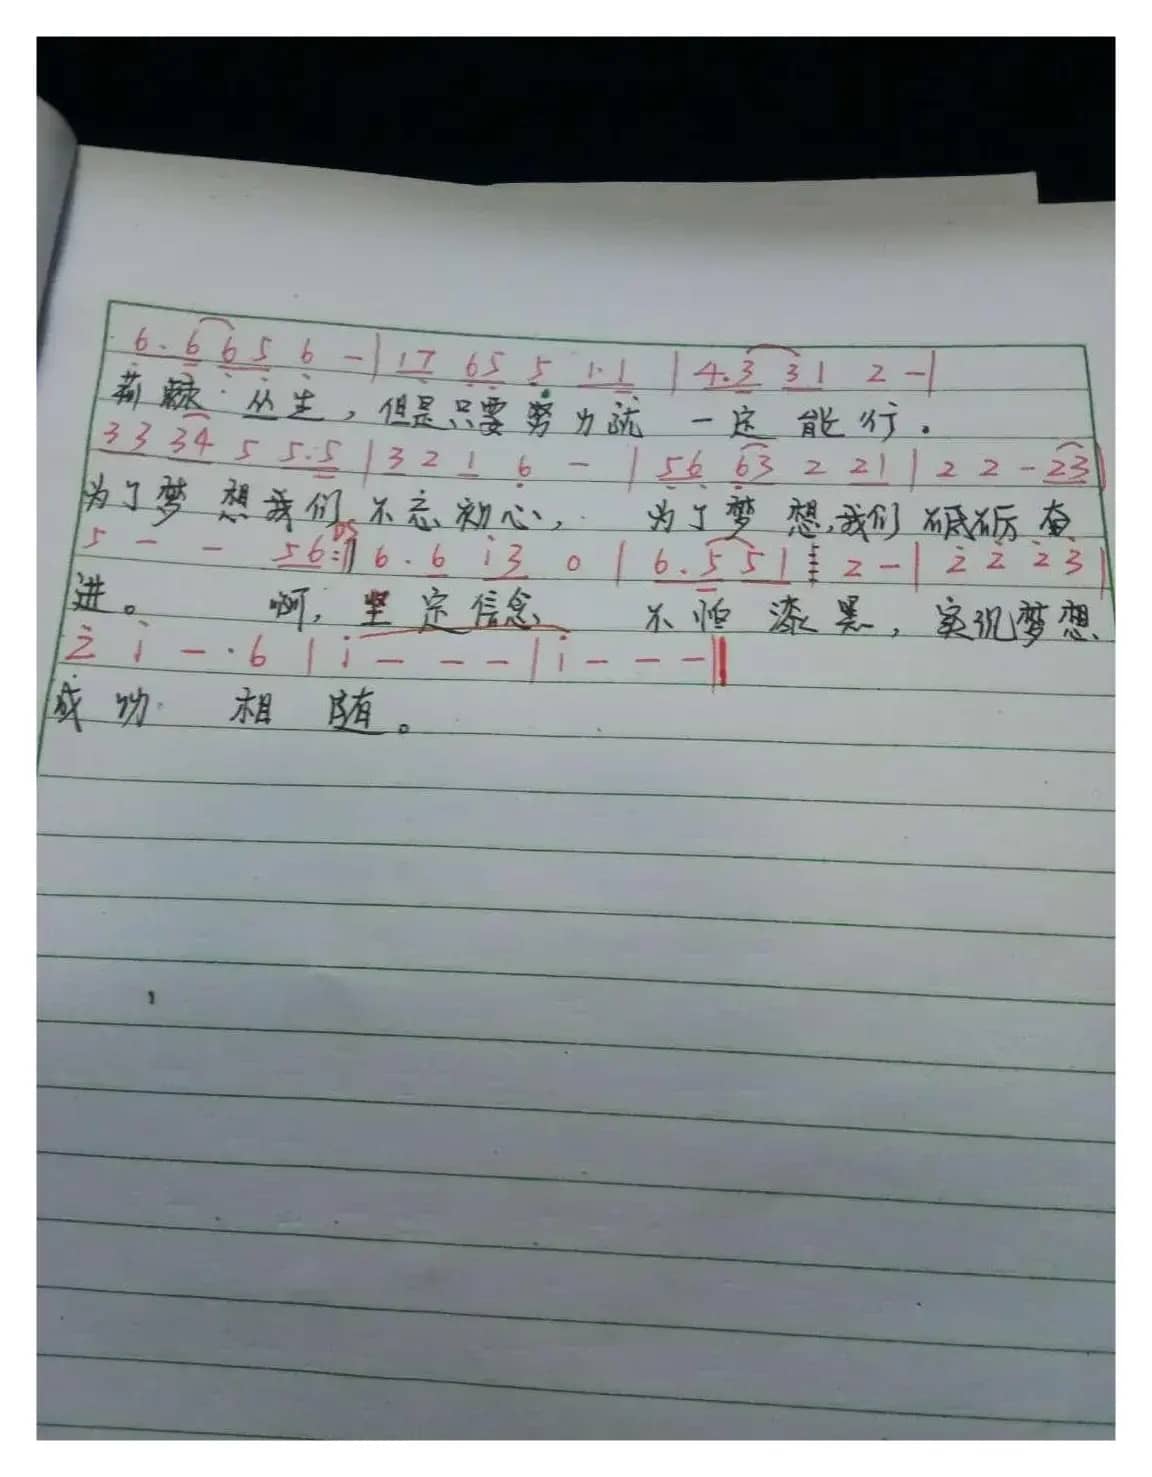 6. 6 6 5 6 - | 1 7 6 5 5 1. 1 | 4. 3 3 1 2 - |
荊棘丛生，但是只要努力就一定能行。
3 3 3 4 5 5. 5 | 3 2 1 6 - | 5 6 6 3 2 2 1 | 2 2 - 2 3 |
为了梦想我们不忘初心，为了梦想，我们砥砺奋
5 - - 5 6 :|| 6. 6 i 3 0 | 6. 5 5 1 2 - | 2 2 2 3 |
进。啊，坚定信念不怕漆黑，实现梦想
2 i - · 6 | i - - - | i - - - ||
成功相随。